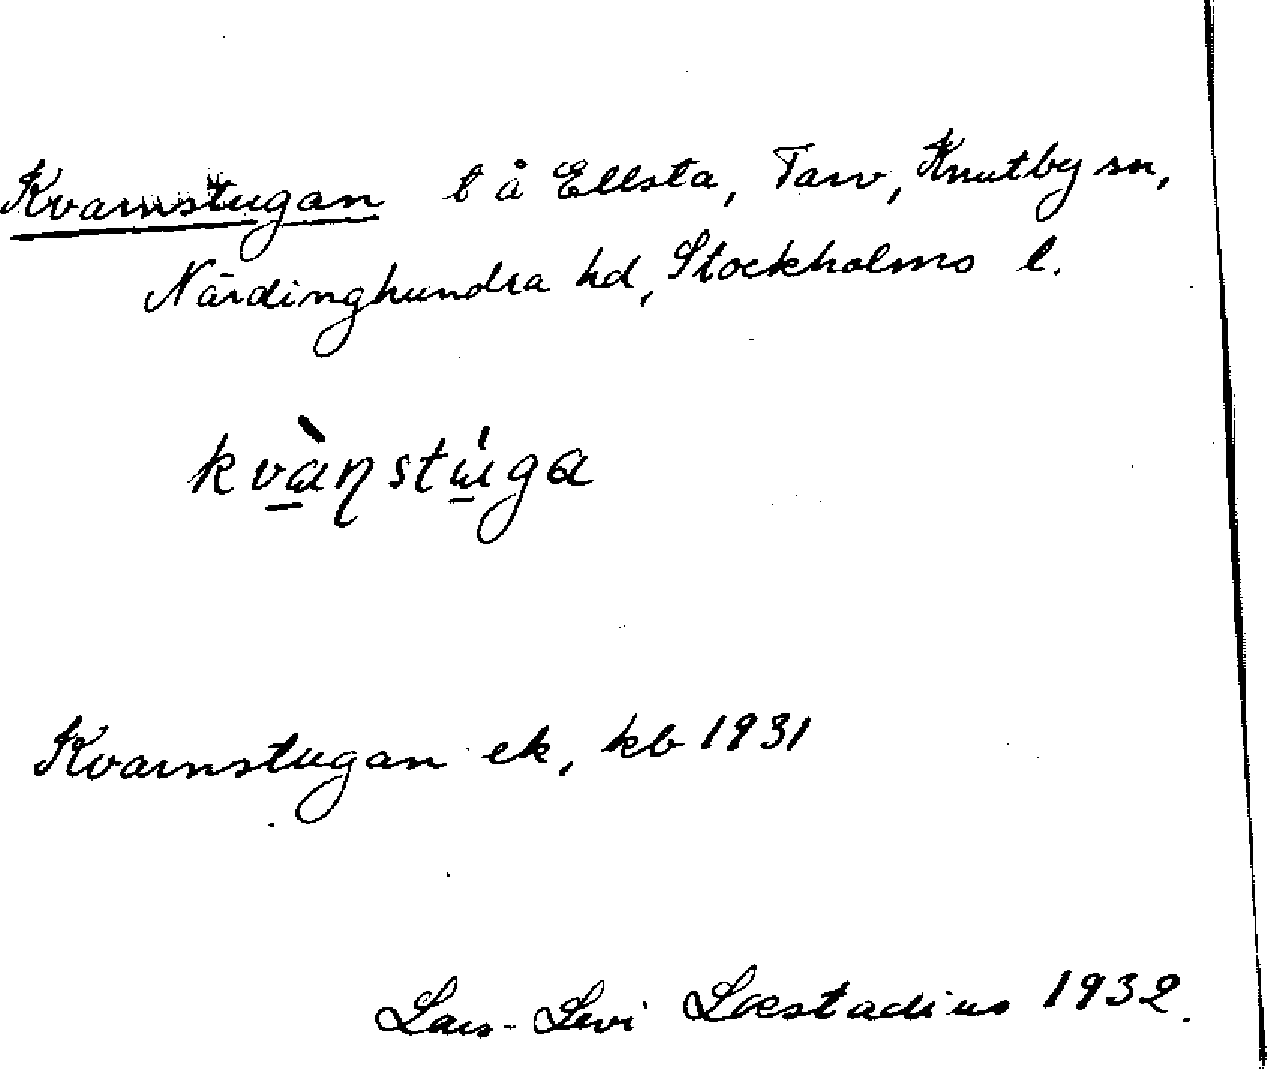 Kvarnstugan l å Ellsta, Tarv, Knutby sn,
Närdinghundra hd, Stockholms l.
kvὰ̠ṇstά̠gα
Kvarnstugan ek, kb 1931
Lars-Levi Læstadius 1932.